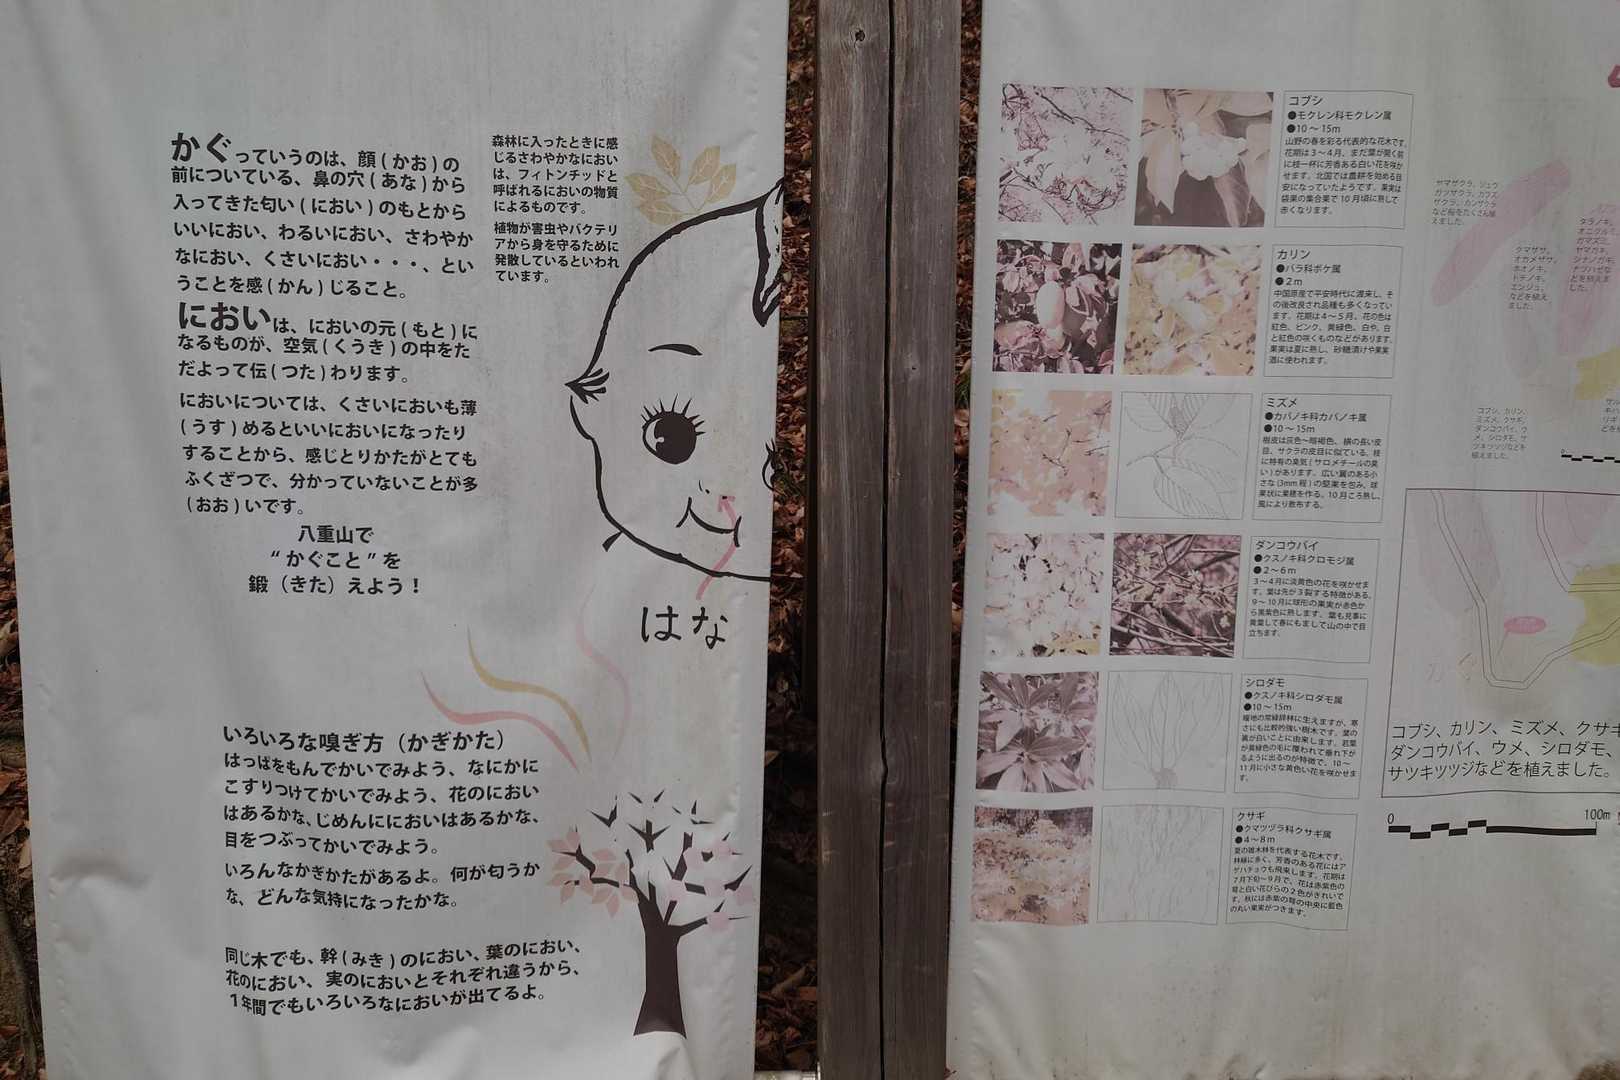 かぐっていうのは、顔 ( かお ) の
前についている、鼻の穴 ( あな ) から
入ってきた匂い ( におい ) のもとから
いいにおい、わるいにおい、さわやか
なにおい、くさいにおい・・・、とい
うことを感 ( かん ) じること。
においは、においの元 ( もと ) に
なるものが、空気 ( くうき ) の中をた
だよって伝 ( つた ) わります。
においについては、くさいにおいも薄
( うす ) めるといいにおいになったり
することから、感じとりかたがとても
ふくざつで、分かっていないことが多
( おお ) いです。
八重山で
“ かぐこと ” を
鍛（きた）えよう！
森林に入ったときに感
じるさわやかなにおい
は、フィトンチッドと
呼ばれるにおいの物質
によるものです。
植物が害虫やバクテリ
アから身を守るために
発散しているといわれ
ています。
はな
いろいろな嗅ぎ方（かぎかた）
はっぱをもんでかいでみよう、なにかに
こすりつけてかいでみよう、花のにおい
はあるかな、じめんににおいはあるかな、
目をつぶってかいでみよう。
いろんなかぎかたがあるよ。何が匂うか
な、どんな気持になったかな。
同じ木でも、幹 ( みき ) のにおい、葉のにおい、
花のにおい、実のにおいとそれぞれ違うから、
1年間でもいろいろなにおいが出てるよ。
コブシ
●モクレン科モクレン属
●10 ～ 15m
山野の春を彩る代表的な花木です。
花期は３～４月、まだ葉が開く前
に枝一杯に芳香ある白い花を咲か
せます。北国では農耕を始める目
安になっていたようです。果実は
袋果の集合果で 10 月頃に熟して
赤くなります。
カリン
●バラ科ボケ属
● 2 m
中国原産で平安時代に渡来し、そ
の後改良され品種も多くなってい
ます。花期は４～５月、花の色は
紅色、ピンク、黄緑色、白や、白
と紅色の咲くものなどがあります。
果実は夏に熟し、砂糖漬けや果実
酒に使われます。
ミズメ
●カバノキ科カバノキ属
●10 ～ 15m
樹皮は灰色～暗褐色、横の長い皮
目、サクラの皮目に似ている。枝
に特有の臭気 ( サロメチールの臭
い ) があります。広い翼のある小
さな (3mm 程 ) の堅果を包み、球
果状に果穂を作る。10 月ころ熟し、
風により散布する。
ダンコウバイ
●クスノキ科クロモジ属
● 2 ～ 6 m
３～４月に淡黄色の花を咲かせま
す。葉は先が３裂する特徴がある。
９～ 10 月に球形の果実が赤色か
ら黒紫色に熟します。葉も見事に
黄葉して春にもまして山の中で目
立ちます。
シロダモ
●クスノキ科シロダモ属
●10 ～ 15m
暖地の常緑樹林に生えますが、寒
さにも比較的強い樹木です。葉の
裏が白いことに由来します。若葉
が黄緑色の毛に覆われて垂れ下が
るように出るのが特徴で、10 ～
11 月に小さな黄色い花を咲かせま
す。
クサギ
●クマツヅラ科クサギ属
● 4 ～ 8m
夏の雑木林を代表する花木です。
林縁に多く、芳香のある花にはア
ゲハチョウも飛来します。花期は
７月下旬～９月で、花は赤紫色の
萼と白い花びらの２色がきれいで
す。秋には赤紫の萼の中央に藍色
の丸い果実がつきます。
ヤマザクラ、ジュウ
ガツザクラ、カワヅ
ザクラ、カンザクラ
など桜をたくさん植
えました。
クマザサ、
オカメザサ、
ホオノキ、
トチノキ、
エンジュ、
などを植え
ました。
タラノキ、
オニグルミ、
ガマズミ、
ヤマガキ、
シナノガキ、
ナツハゼな
どを植えま
した。
コブシ、カリン、
ミズメ、クサギ、
ダンコウバイ、ウ
メ、シロダモ、サ
ツキツツジなどを
植えました。
コブシ、カリン、ミズメ、クサギ
ダンコウバイ、ウメ、シロダモ、
サツキツツジなどを植えました。
0 100m